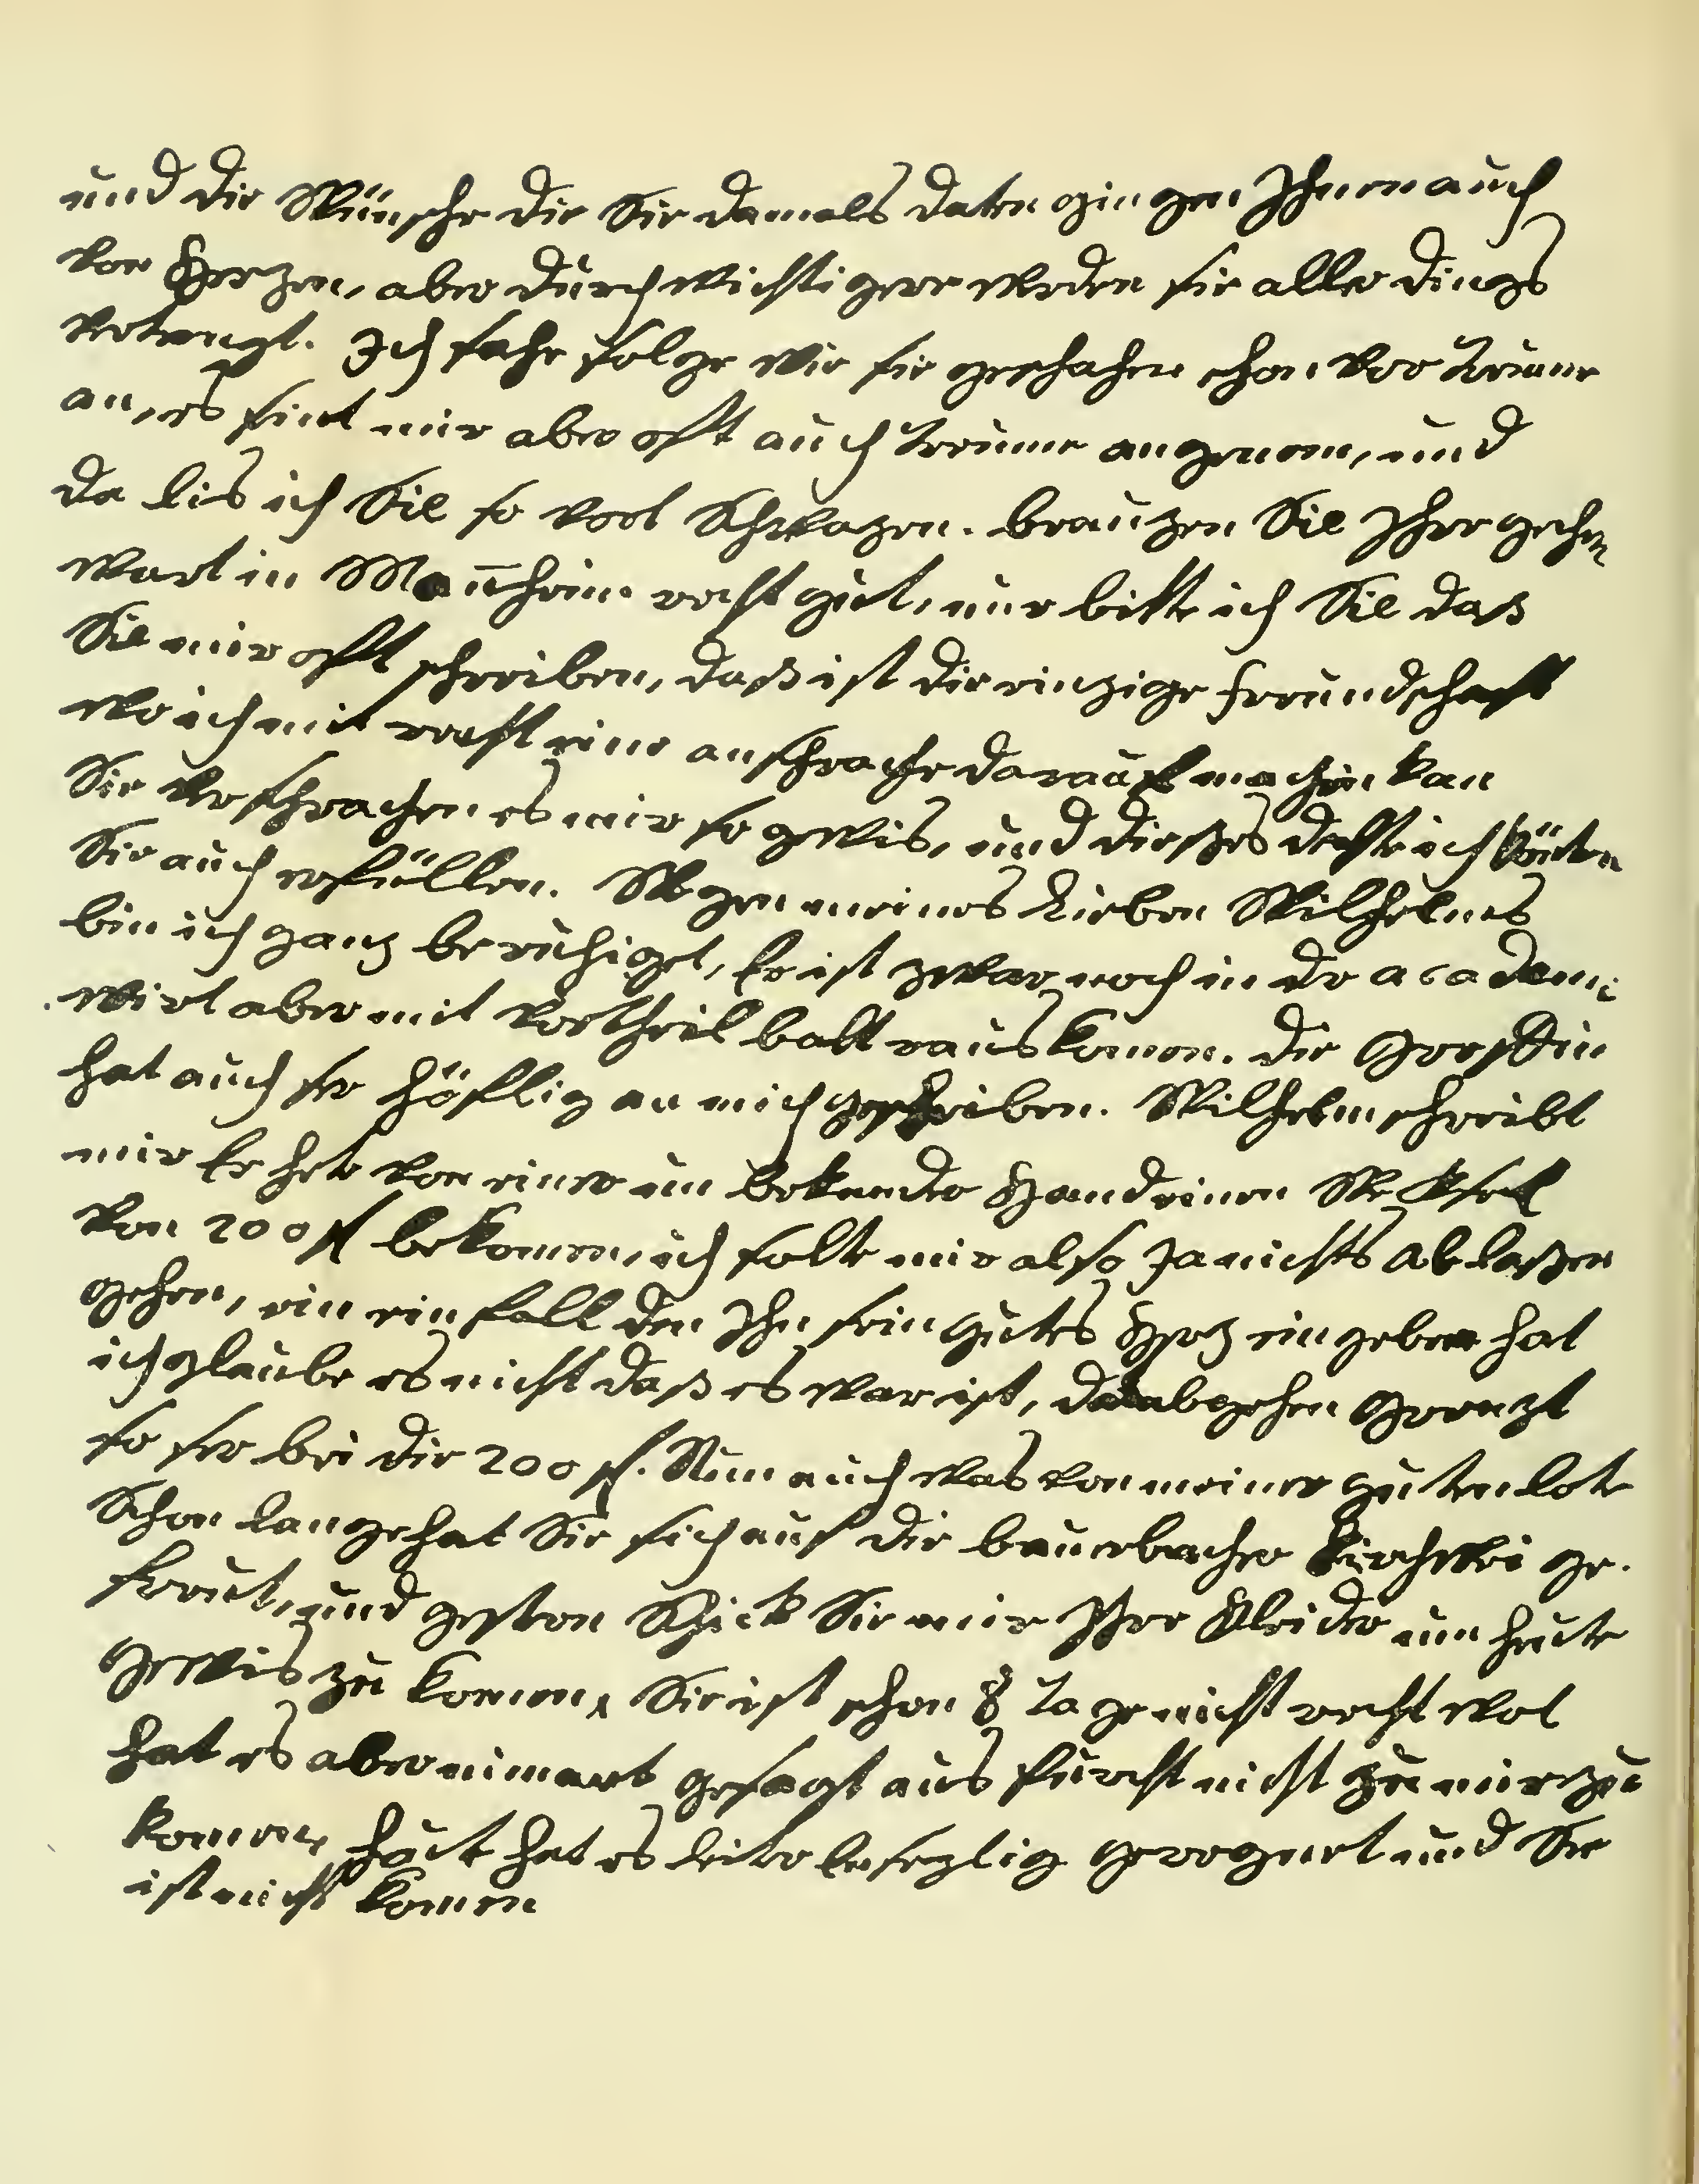 und die Wünsche die Sie damals daten gingen Ihnen auch
von Herzen, aber durch wichtigere werden sie aller dings
vertrengt. Ich sahe solge wie sie geschahen schon vor treume
an, es sint mir aber oft auch treume angenem, und
da lis ich Sie so vort Schwazen. brauchen Sie Ihre gechen
wart in Mannheim recht gut, nur bitte ich Sie daß
Sie mir oft schreiben, daß ist die einzige freundschaft
wo ich mit recht eine anschprache darauf machen kan
Sie verschprachen es mir so gewis, und dießes dechte ich könten
Sie auch erfüllen. Wegen meines Lieben Wilhelms
bin ich ganz beruhiget, Er ist zwar noch in der academi
wirt aber mit vortheil balt raus komen. die Groffin
hat auch ser höflig an mich geschriben. Wilhelm schreibt
mir Er hete von einer un bekander Hand einen Weksel
von 200 fl bekomen, ich solte mir also Ja nichts ab laßen
gehen, ein ein fall den Ihn sein gutes Herz ein geben hat
ich glaube es nicht daß es war ist, dan abgehen Grenzt
so ser bei die 200 fl. Nun auch was von meiner guten lote
Schon lange hat Sie sich auf die bauerbacher Kirchwei ge.
freut, und gestern Schick Sie mir Ihre Kleider um heute
gewis zu komen, Sie ist schon 8 tage nicht recht wol
hat es aber nimant gesagt aus furcht nicht zu mir zu
komen, heut hat es leider ensezlig geregnet und Sie
ist nicht komen